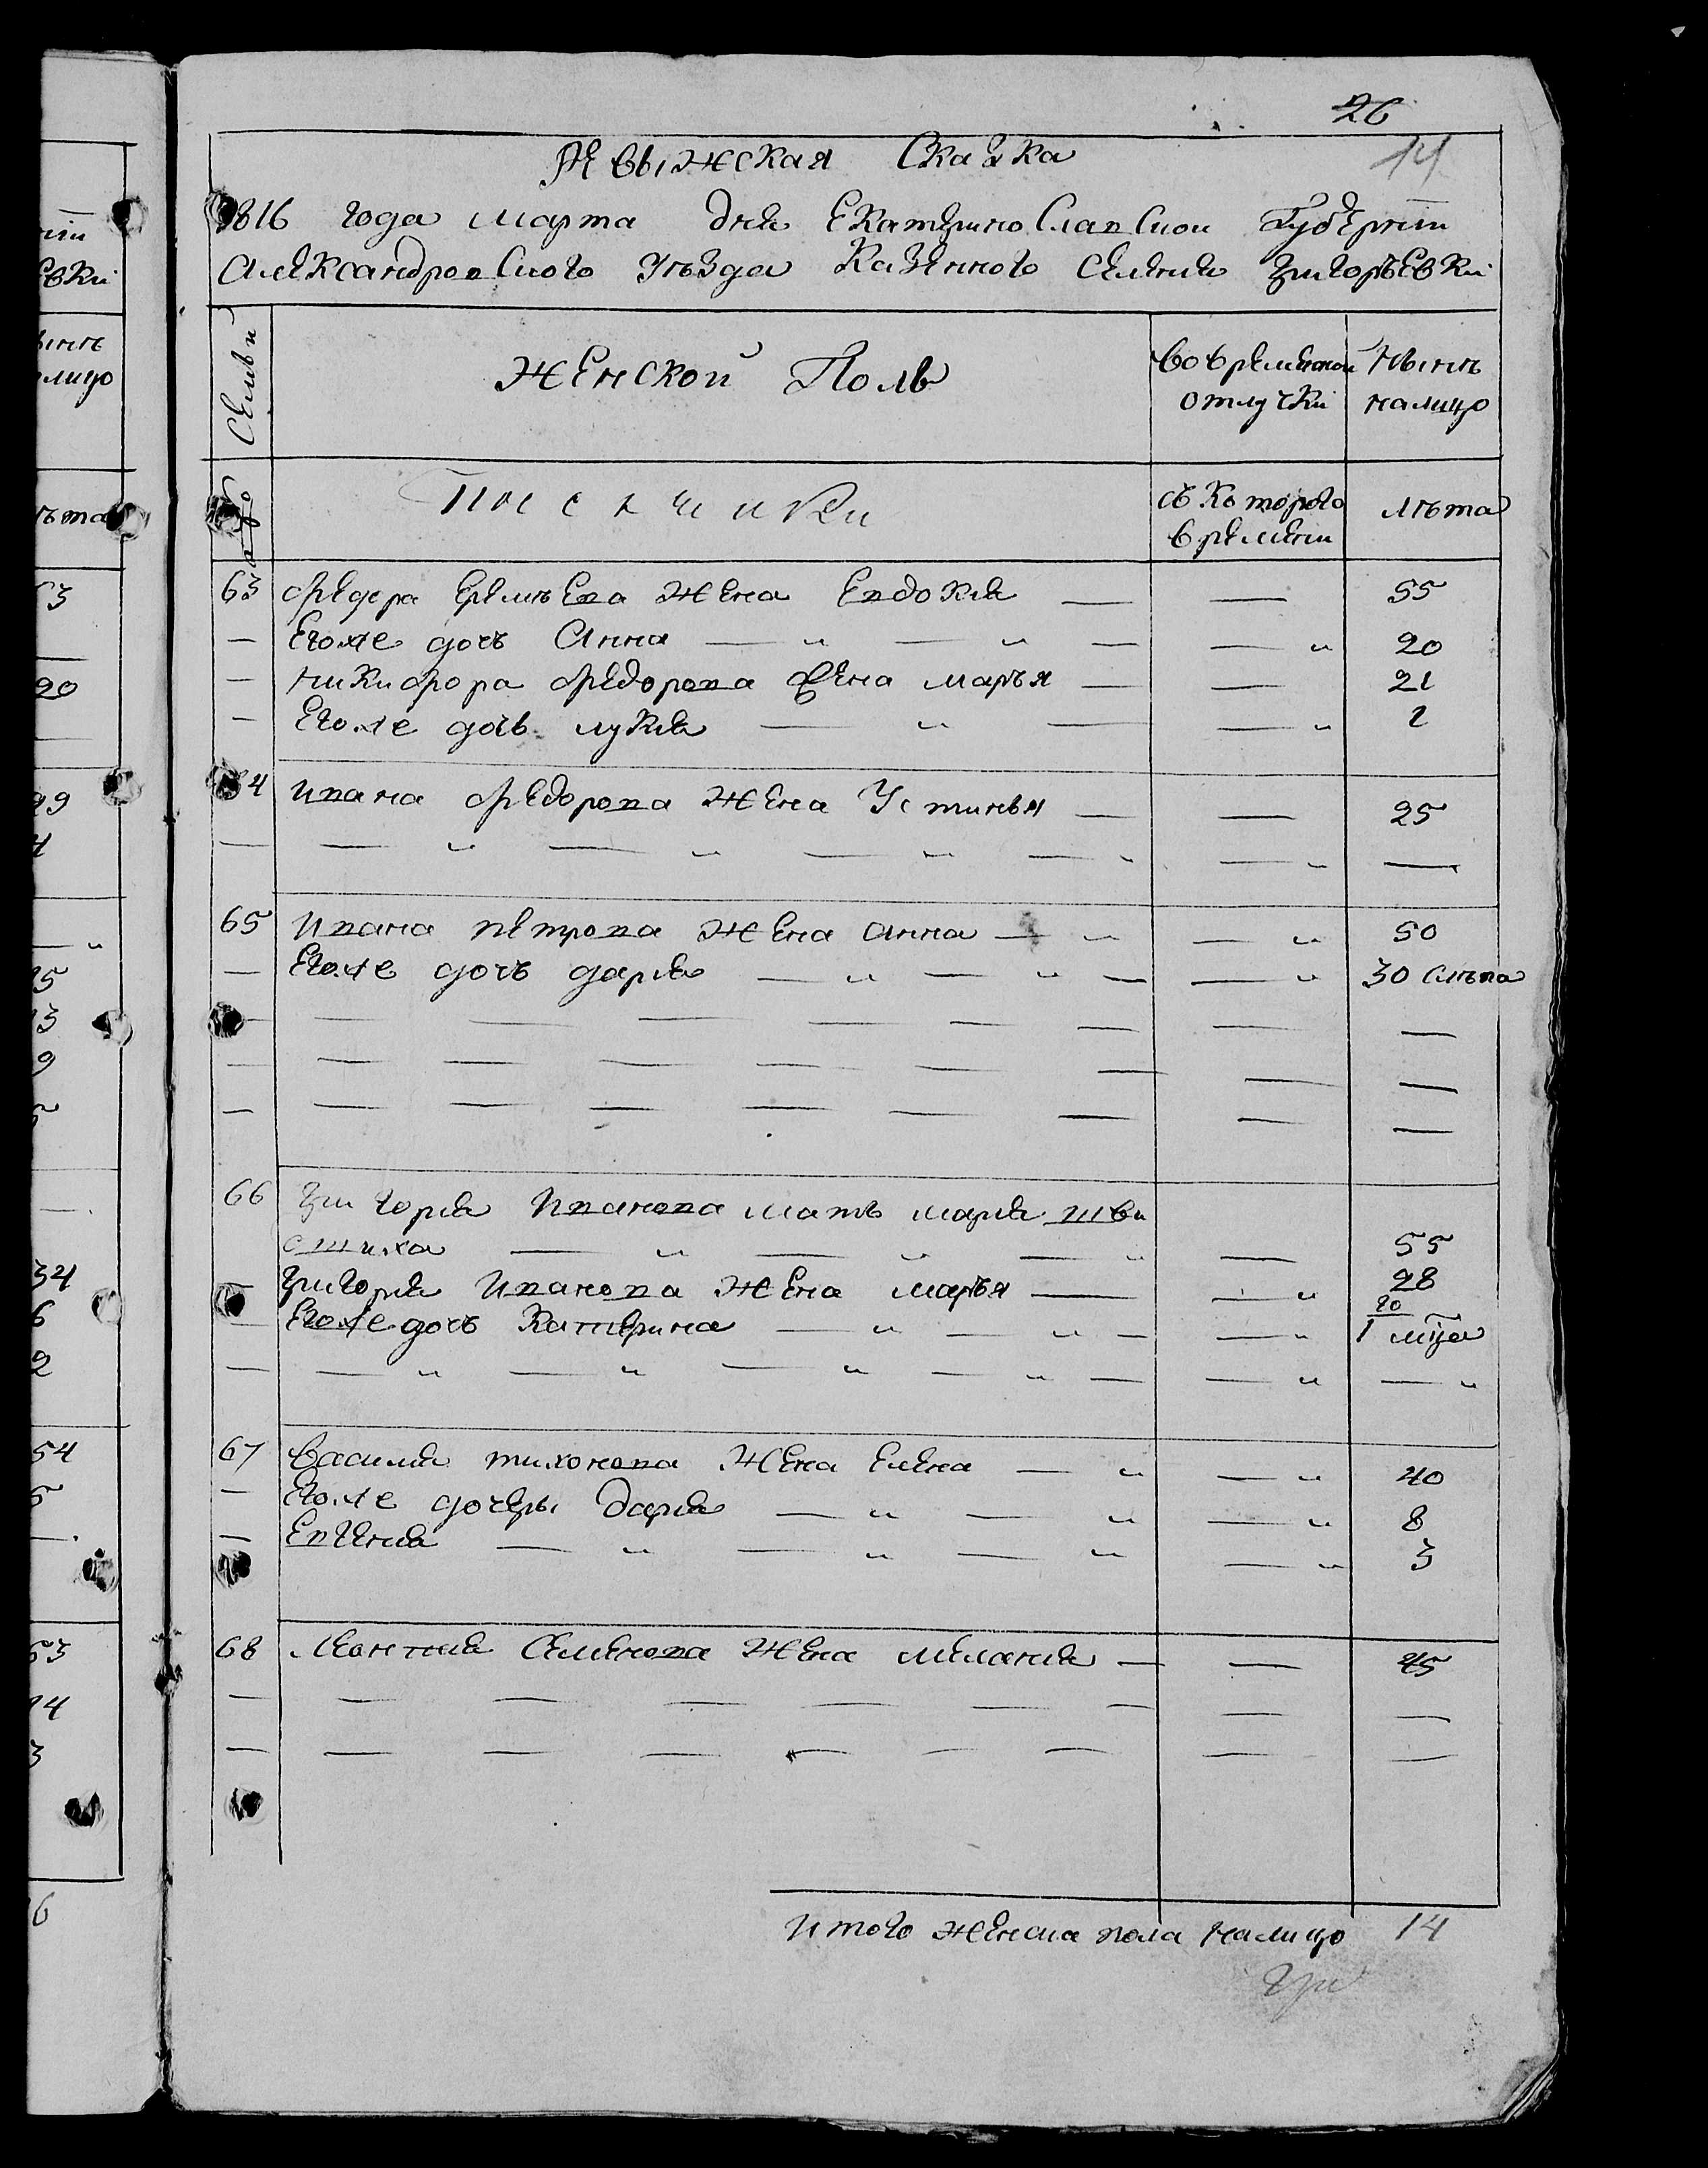 26
14
Ревижская Сказка
1816 года марта дня Екатеринославской Губернiи
Александровского уѣзда Казенного селения Григорьевки
Семьи
Женской Полъ
Во временной отлучки
Нынѣ налицо
съ которого времени
лѣта
63 Федора Еремѣева жена Евдокия — — 55
— Егоже дочь Анна — „ — „ — — „ 20
— Никифора Федорова жена марья — — 21
— Егоже дочь лукия — „ — — „ 2
64 Ивана Федорова жена Устинья — — 25
65 Ивана петрова жена анна — „ — „ 50
— Егоже дочъ дария — „ — „ — — „ 30 слѣпа
66 Григория Иванова мать мария шве
стиха — „ — „ — „ — 55
— Григория Иванова жена марья — — „ 28
— Егоже дочъ Катерина — „ — „ — — „ 1 мца
67 Василия тихонова жена Елена — „ — „ 40
— Егоже дочери дария — „ — „ — „ 8
— Евгения — „ — „ — „ — „ 3
68 Леонтия Семенова жена мелания — — 45
Итого женска пола налицо 14